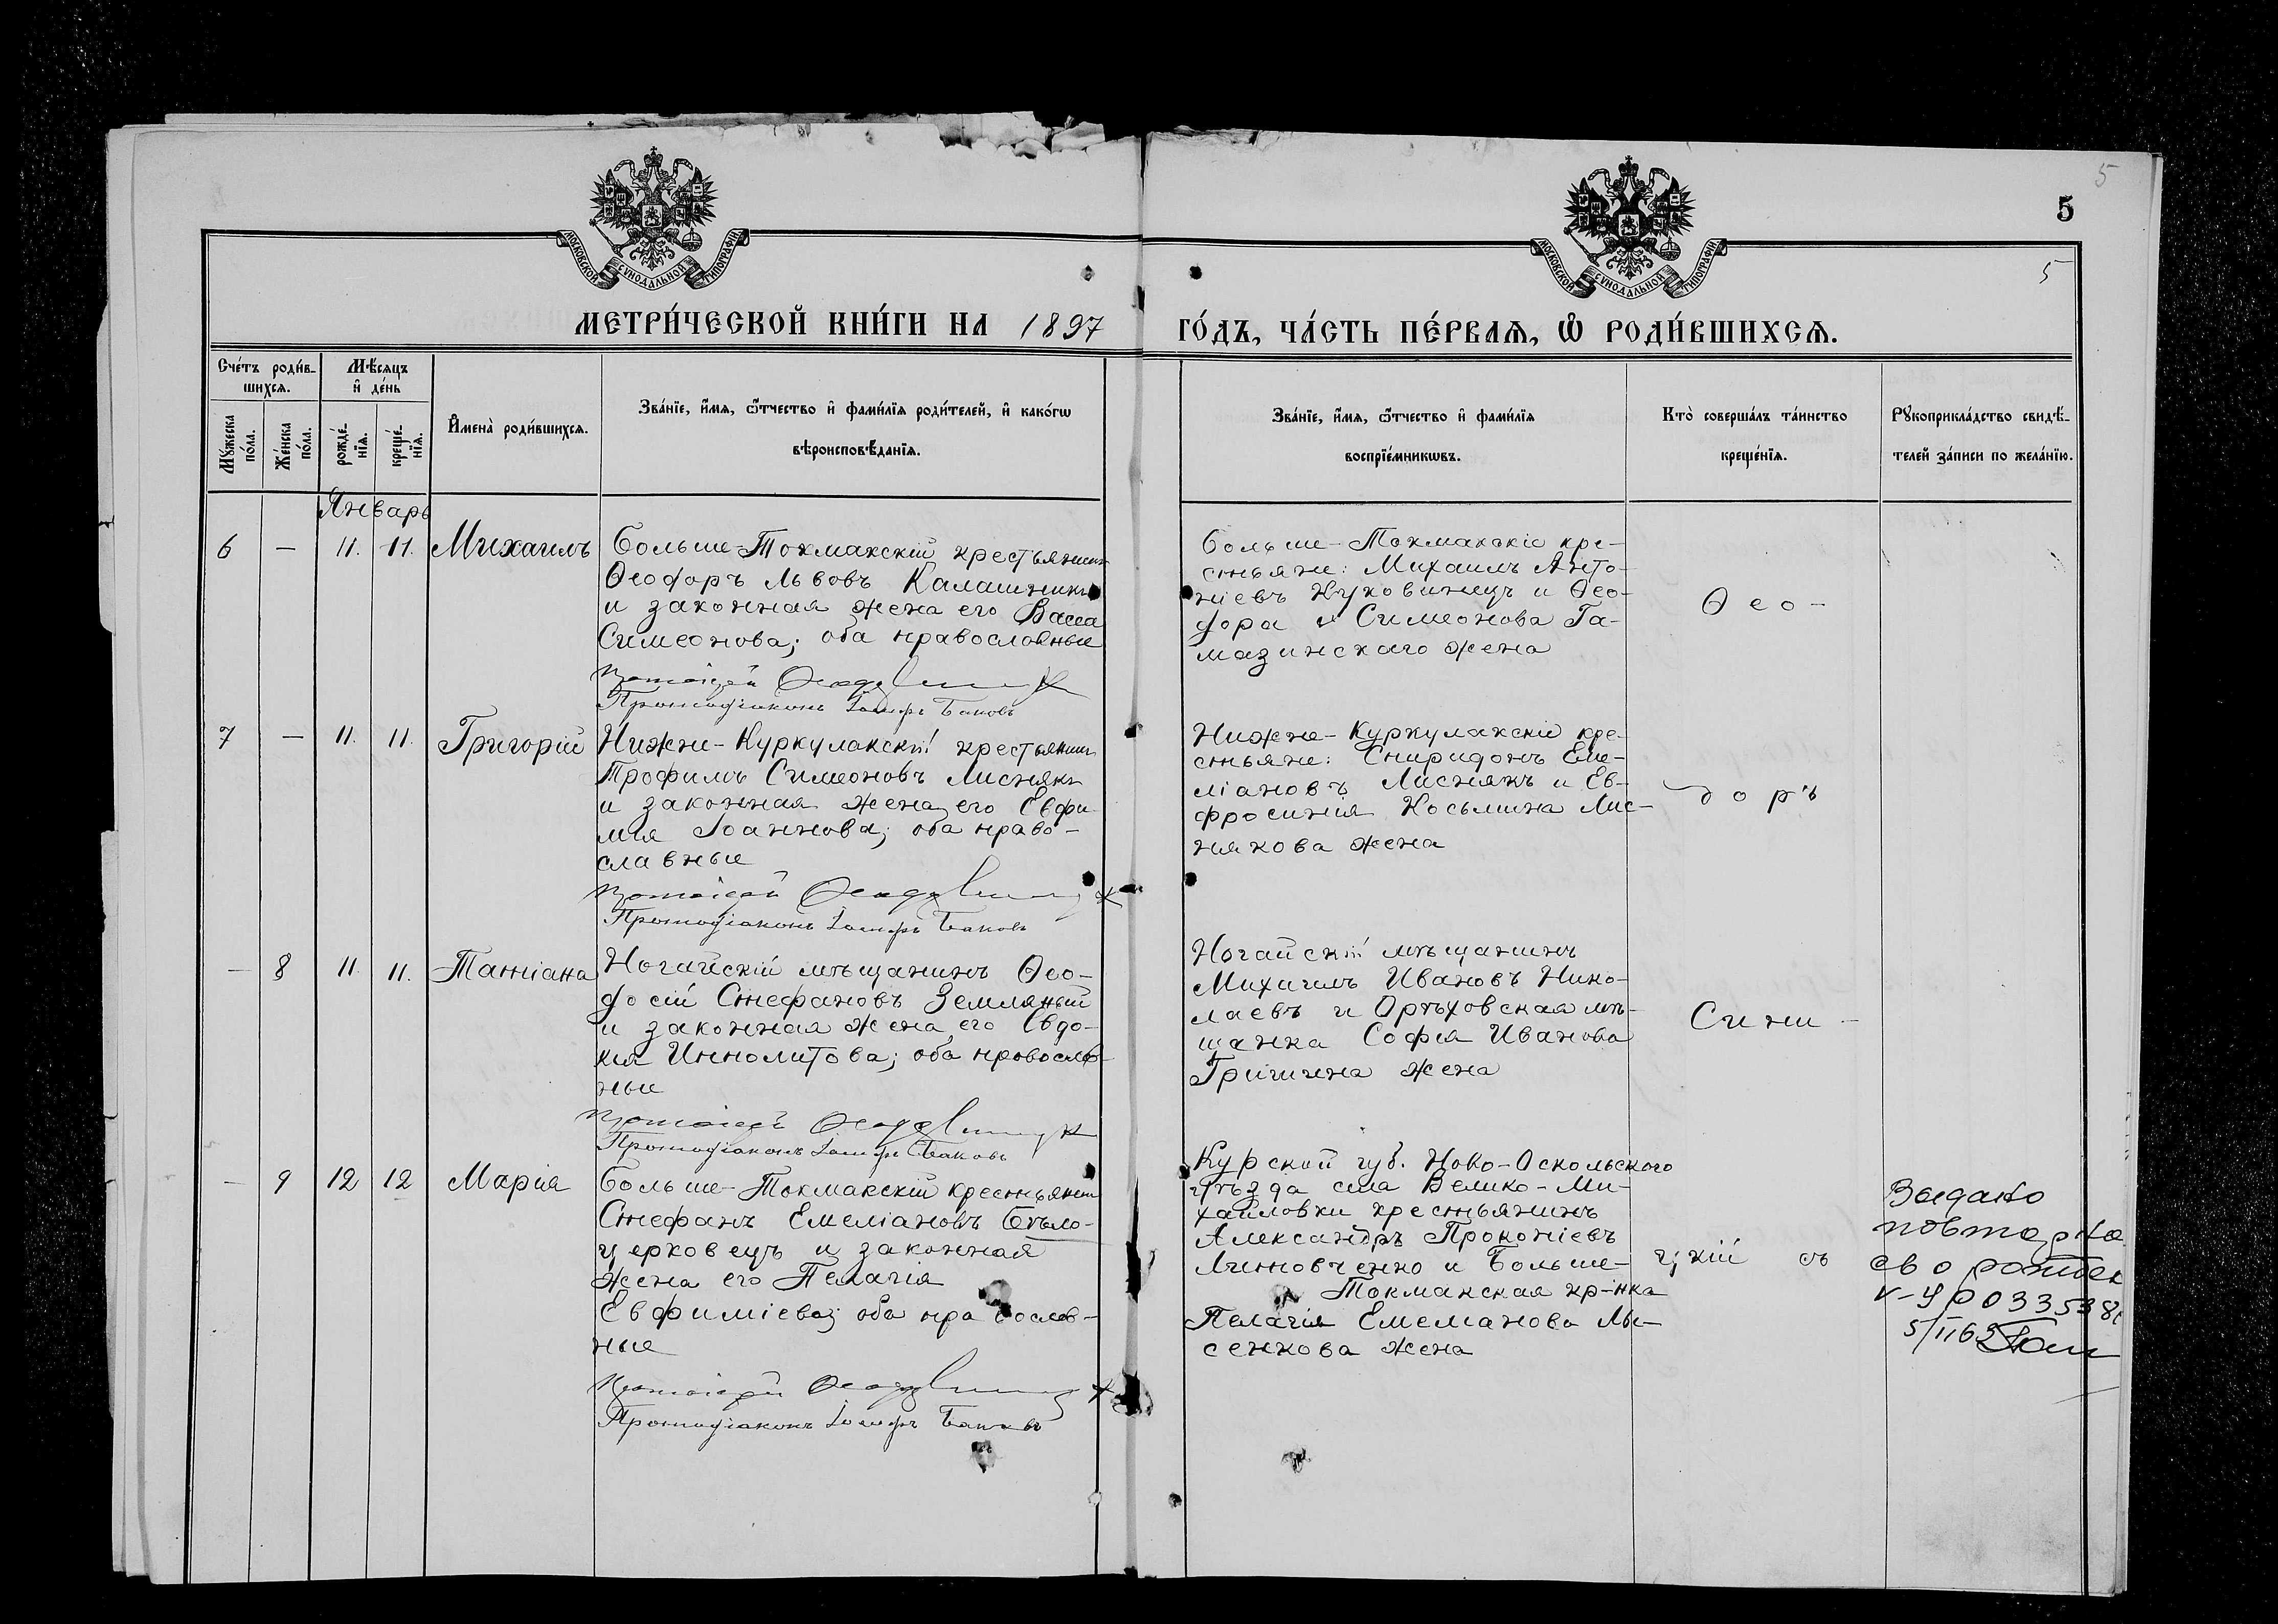 5
5
МОСКОВСКОЙ СѴНОДАЛЬНОЙ ТИПОГРАФІИ
МОСКОВСКОЙ СѴНОДАЛЬНОЙ ТИПОГРАФІИ
5
МЕТРИ́ЧЕСКОЙ КНИ́ГИ НА 1897 ГО́ДЪ, ЧА́СТЬ ПЕ́РВАЯ, Ѡ҆ РОДИ́ВШИХСЯ.
Сче́тъ роди́в-
шихся.
Мѣ́сяцъ
и҆ де́нь
Мꙋ́жеска по́ла.
Же́нска по́ла.
рожде́-
нїя.
креще́-
нїя.
И҆мена̀ роди́вшихся.
Зва́нїе, и҆́мя, ѻ҆́тчество и҆ фами́лїя роди́телей, и҆ како́гѡ
вѣроисповѣ́данїя.
Зва́нїе, и҆́мя, ѻ҆́тчество и҆ фами́лїя
воспрїе́мникѡвъ.
Кто̀ соверша́лъ та́инство
креще́нїя.
Рꙋкоприкла́дство свидѣ́-
телей за́писи по жела́нїю.
Январь
6 — 11. 11. Михаилъ
Больше-Токмакскій крестьянинъ
Ѳеодоръ Львовъ Калашникъ
и законная жена его Васса
Симеонова; оба православные
Протоіерей
Протодіаконъ Баковъ
Больше-Токмакскіе кре-
стьяне: Михаилъ Анто-
ніевъ Куковинецъ и Ѳео-
дора Симеонова Га-
мазинскаго жена
Ѳео-
7 — 11. 11. Григорій
Нижне-Куркулакскій крестьянинъ
Трофимъ Симеоновъ Лиснякъ
и законная жена его Евфи-
мія Іоаннова; оба право-
славные
Протоіерей
Протодіаконъ Баковъ
Нижне-Куркулакскіе кре-
стьяне: Спиридонъ Еме-
ліановъ Лиснякъ и Ев-
фросинія Косьмина Лис-
някова жена
доръ
— 8 11. 11. Татіана
Ногайскій мѣщанинъ Ѳео-
досій Стефановъ Земляный
и законная жена его Евдо-
кія Ипполитова; оба православ-
ные
Протоіерей
Протодіаконъ Баковъ
Ногайскій мѣщанинъ
Михаилъ Ивановъ Нико-
лаевъ и Орѣховская мѣ-
щанка Софія Иванова
Григина жена
Сини-
— 9 12 12 Марія
Больше-Токмакскій крестьянинъ
Стефанъ Емеліановъ Бѣло-
церковецъ и законная
жена его Пелагія
Евфиміева; оба православ-
ные
Протоіерей
Протодіаконъ Баковъ
Курской губ. Ново-Оскольского
уѣзда села Велико-Ми-
хайловки крестьянинъ
Александръ Прокопіевъ
Литовченко и Больше-
Токмакская кр-нка
Пелагія Емеліанова Лы-
сенкова жена
цкій съ
Выдано
повторно
св о рожден
V-УР 033538
5/II 63